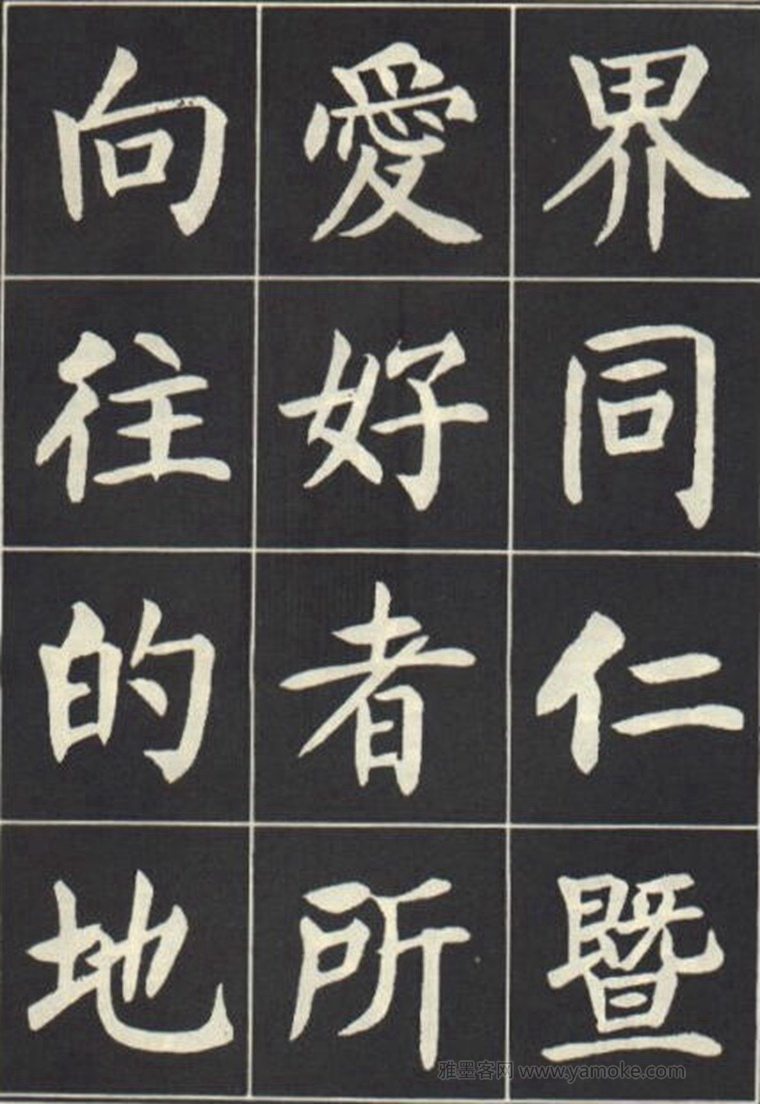 界同仁暨
愛好者所
向往的地
雅墨客网 www.yamoke.com